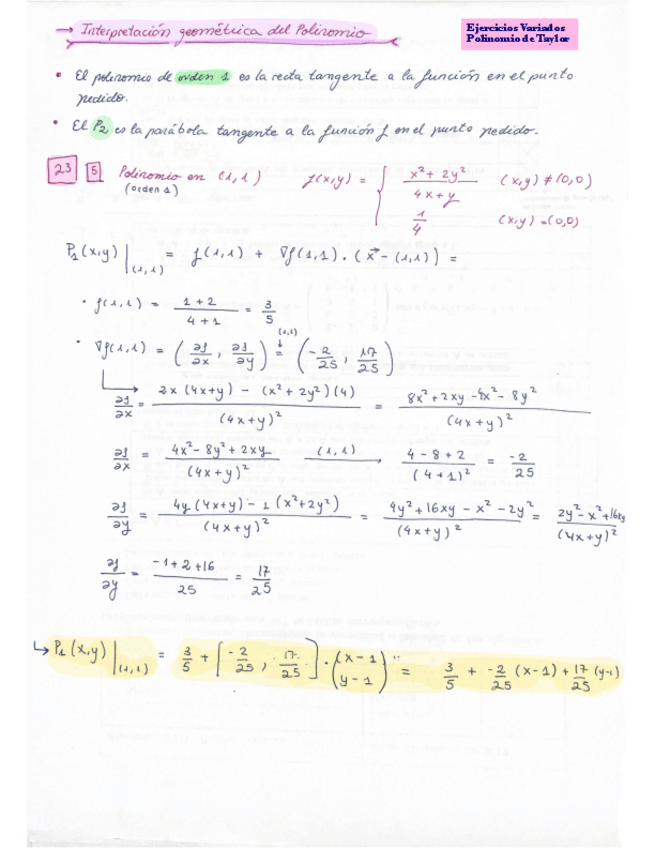 → Interpretación geométrica del Polinomio
Ejercicios Variados
Polinomio de Taylor
• El polinomio de orden 1 es la recta tangente a la función en el punto
pedido.
• El P₂ es la parábola tangente a la función f en el punto pedido.
23 5 Polinomio en (1,1) f(x,y) = { (x²+2y²)/(4x+y) (x,y)≠(0,0)
(orden 1) 1/4 (x,y)=(0,0)
P₁(x,y)|(1,1) = f(1,1) + ∇f(1,1)·(x⃗-(1,1)) =
• f(1,1) = (1+2)/(4+1) = 3/5
• ∇f(1,1) = (∂f/∂x, ∂f/∂y) =(1,1)↓ (-2/25, 17/25)
∂f/∂x = (2x(4x+y) - (x²+2y²)(4))/(4x+y)² = (8x²+2xy-4x²-8y²)/(4x+y)²
∂f/∂x = (4x²-8y²+2xy)/(4x+y)² (1,1)→ (4-8+2)/(4+1)² = -2/25
∂f/∂y = (4y(4x+y)-1(x²+2y²))/(4x+y)² = (4y²+16xy-x²-2y²)/(4x+y)² = (2y²-x²+16xy)/(4x+y)²
∂f/∂y = (-1+2+16)/25 = 17/25
↳ P₁(x,y)|(1,1) = 3/5 + [-2/25, 17/25]·(x-1 y-1) = 3/5 + -2/25 (x-1) + 17/25 (y-1)